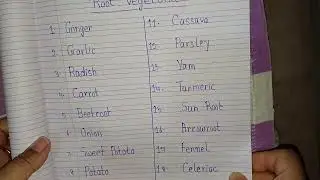 Root Vegetables
1. Ginger
2. Garlic
3. Radish
4. Carrot
5. Beetroot
6. Onion
7. Sweet Potato
8. Potato
11. Cassava
12. Parsley
13. Yam
14. Turmeric
15. Sun Root
16. Arrowroot
17. Fennel
18. Celeriac